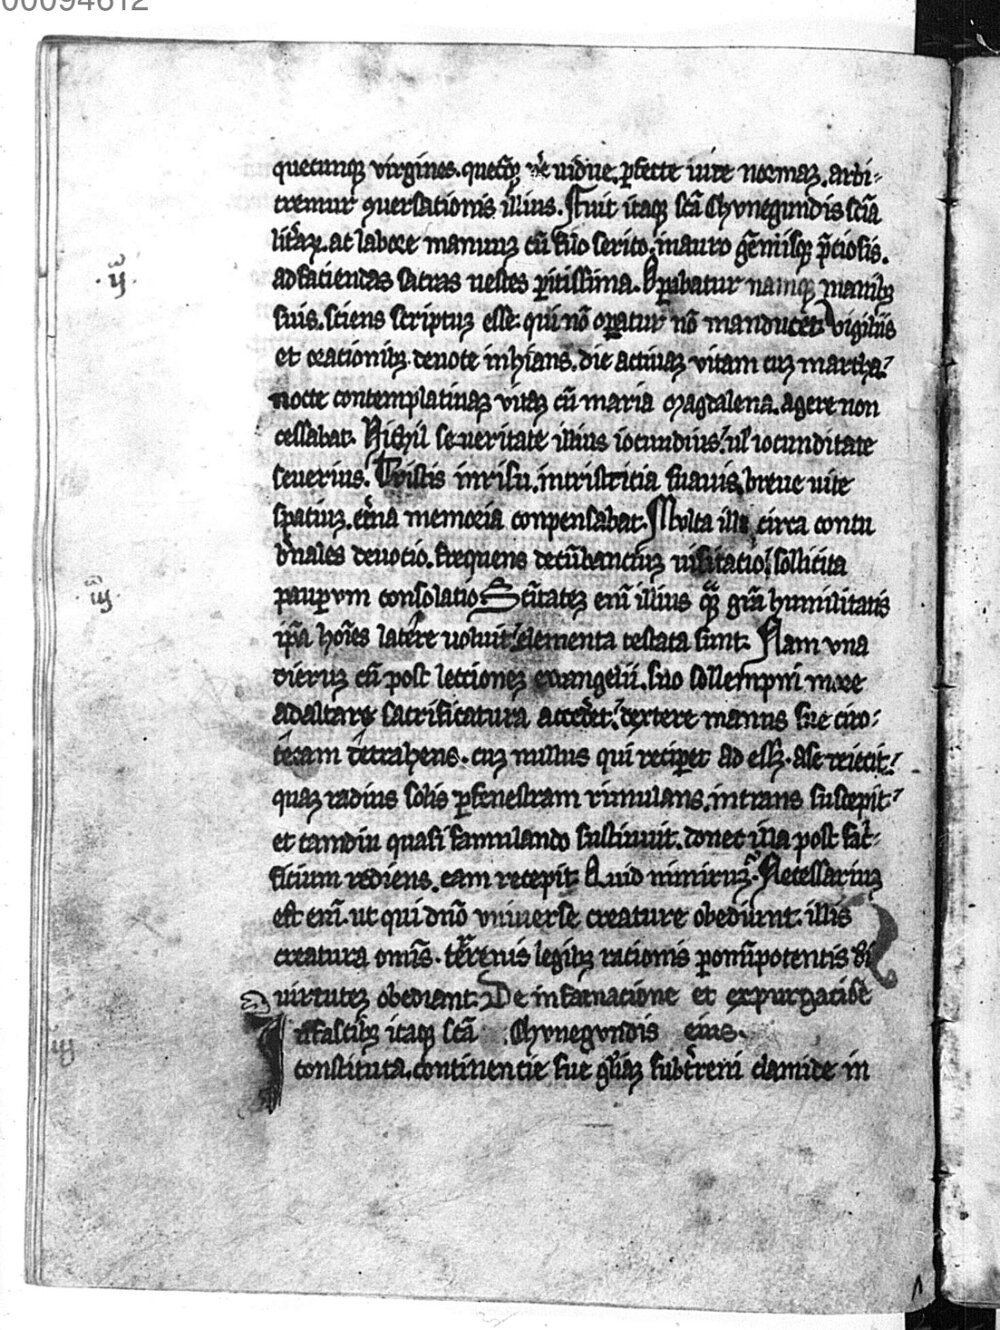 00094612
quecunq virgines. quecq; u̾e uidue. ꝑfecte iure normaꝫ. arbi-
tremur ꝯuersationis illius. Fuit itaqꝫ scā Chvnegundis sciā
litraꝝ. at labore manuuꝫ cū suo serico. in auro gēmisqꝫ p̄ciosis.
ad faciendas sacras uestes ꝑitissima. Oꝑabatur namqꝫ manibꝫ
suis. sciens scriptuꝫ esse. qui nō oꝑatur nō manducet. Vigiliis
et orationibꝫ deuote inhians. die actiuaꝫ vitam cuꝫ martha.
nocte contemplatiuaꝫ vitaꝫ cū maria magdalena. agere non
cessabat. Nichil seueritate illius iocundius. ul iocunditate
seuerius. Tristis in risu. in tristicia suauis. breue uite
spatiuꝫ. etna memoria conpensabat. Mvlta illi circa contu
bnales deuocio. frequens decūbanciuꝫ uisitacio. sollicita
pauꝑvm consolatio. Scītateꝫ enī illius qꝫ grā humilitatis
ip̄a hoīes latere uoluit. elementa testata sunt. Nam vna
dieruꝫ cū post lectioneꝫ ewangelii. suo sollempni more
ad altare sacrificatura accedet. dextere manus sue ciro-
tecam detrahens. cuꝫ nullus qui reciꝑet ad eēt. a se reiecit.
quaꝫ radius solis ꝑ fenestram rimulans. intrans suscepit.
et tamdiu quasi famulando sustinuit. donec illa post sac-
ficium rediens. eam recepit. Quid nimiruꝫ. Necessariuꝫ
est enī. ut qui dnō vniuerse creature obediunt. illis
creatura omīs. terrenis legibꝫ racionis ꝑ omīpotentis di
uirtuteꝫ obediant. De infamacione et expurgacioē
In fascibꝫ itaqꝫ scā Chvnegvndis eius.
constituta. continencie sue gliaꝫ sub treni clamide in